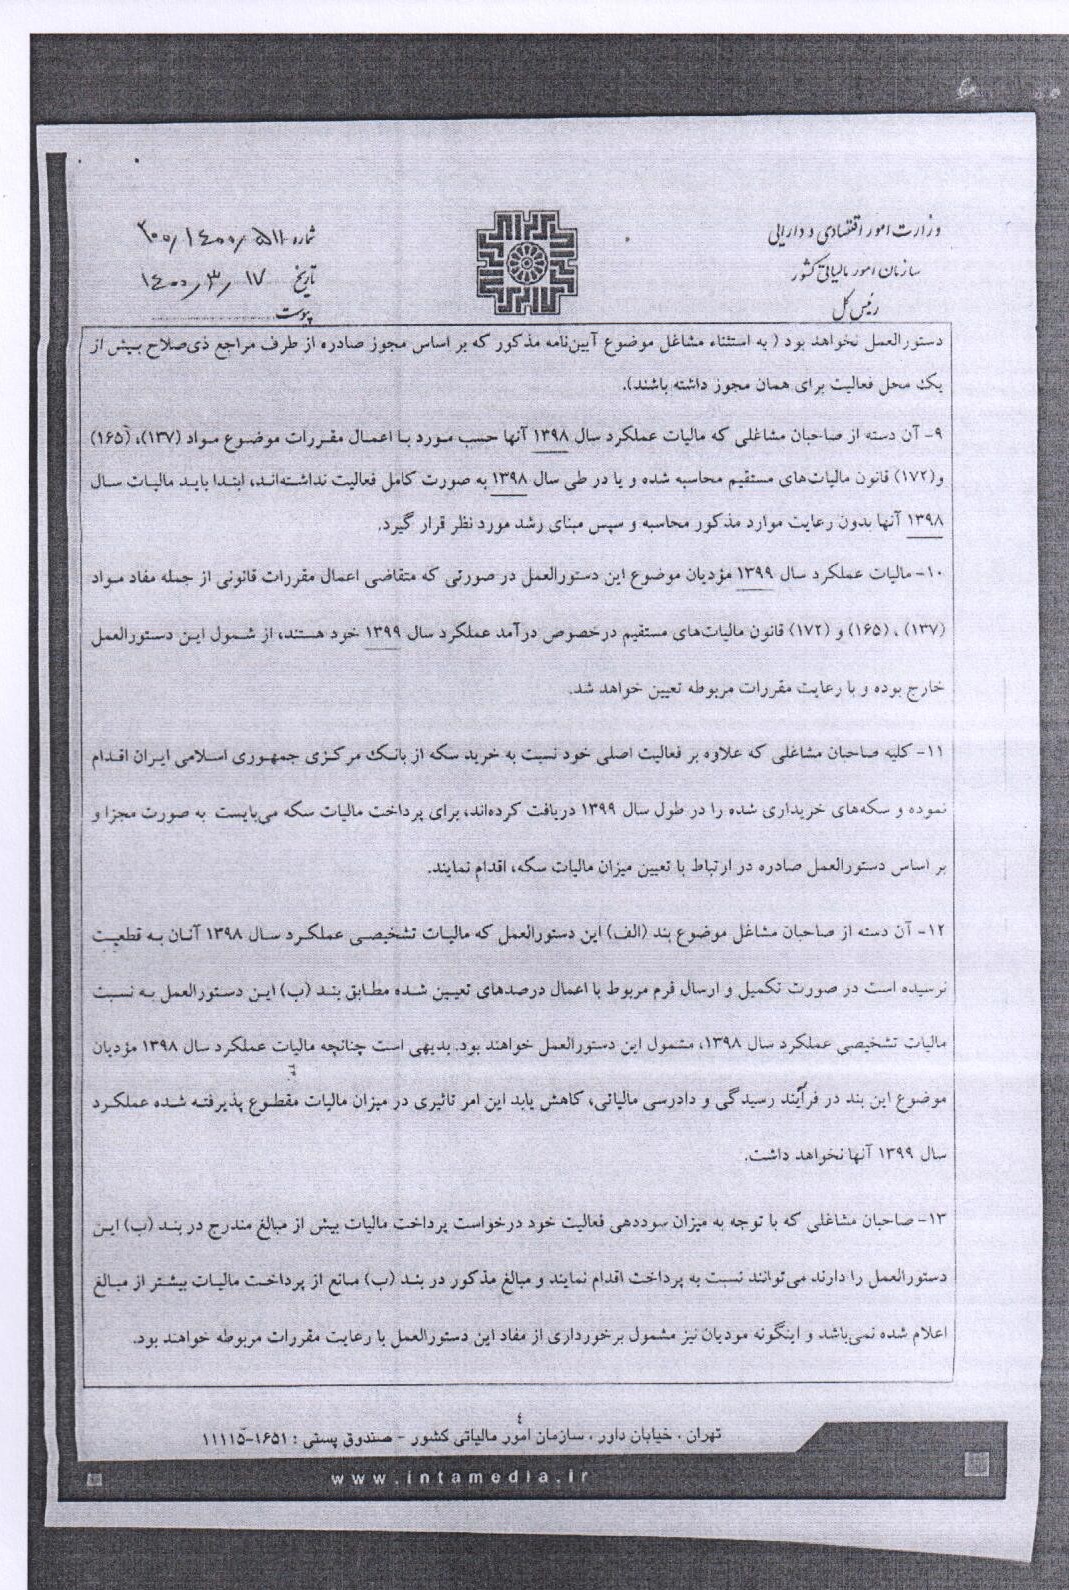 وزارت امور اقتصادی و دارایی
سازمان امور مالیاتی کشور
رئیس کل
شماره ۲۰۰/۱۴۰۰/۵۱۱
تاریخ ۱۴۰۰/۳/۱۷
پیوست
دستورالعمل نخواهد بود ( به استثناء مشاغل موضوع آیین‌نامه مذکور که بر اساس مجوز صادره از طرف مراجع ذی‌صلاح بیش از
یک محل فعالیت برای همان مجوز داشته باشند).
۹- آن دسته از صاحبان مشاغلی که مالیات عملکرد سال ۱۳۹۸ آنها حسب مورد با اعمال مقررات موضوع مواد (۱۳۷)، (۱۶۵)
و(۱۷۲) قانون مالیات‌های مستقیم محاسبه شده و یا در طی سال ۱۳۹۸ به صورت کامل فعالیت نداشته‌اند، ابتدا باید مالیات سال
۱۳۹۸ آنها بدون رعایت موارد مذکور محاسبه و سپس مبنای رشد مورد نظر قرار گیرد.
۱۰- مالیات عملکرد سال ۱۳۹۹ مؤدیان موضوع این دستورالعمل در صورتی که متقاضی اعمال مقررات قانونی از جمله مفاد مواد
(۱۳۷) ، (۱۶۵) و (۱۷۲) قانون مالیات‌های مستقیم درخصوص درآمد عملکرد سال ۱۳۹۹ خود هستند، از شمول این دستورالعمل
خارج بوده و با رعایت مقررات مربوطه تعیین خواهد شد.
۱۱- کلیه صاحبان مشاغلی که علاوه بر فعالیت اصلی خود نسبت به خرید سکه از بانک مرکزی جمهوری اسلامی ایران اقدام
نموده و سکه‌های خریداری شده را در طول سال ۱۳۹۹ دریافت کرده‌اند، برای پرداخت مالیات سکه می‌بایست به صورت مجزا و
بر اساس دستورالعمل صادره در ارتباط با تعیین میزان مالیات سکه، اقدام نمایند.
۱۲- آن دسته از صاحبان مشاغل موضوع بند (الف) این دستورالعمل که مالیات تشخیصی عملکرد سال ۱۳۹۸ آنان به قطعیت
نرسیده است در صورت تکمیل و ارسال فرم مربوط با اعمال درصدهای تعیین شده مطابق بند (ب) این دستورالعمل به نسبت
مالیات تشخیصی عملکرد سال ۱۳۹۸، مشمول این دستورالعمل خواهند بود. بدیهی است چنانچه مالیات عملکرد سال ۱۳۹۸ مؤدیان
موضوع این بند در فرآیند رسیدگی و دادرسی مالیاتی، کاهش یابد این امر تاثیری در میزان مالیات مقطوع پذیرفته شده عملکرد
سال ۱۳۹۹ آنها نخواهد داشت.
۱۳- صاحبان مشاغلی که با توجه به میزان سوددهی فعالیت خود درخواست پرداخت مالیات بیش از مبالغ مندرج در بند (ب) این
دستورالعمل را دارند می‌توانند نسبت به پرداخت اقدام نمایند و مبالغ مذکور در بند (ب) مانع از پرداخت مالیات بیشتر از مبالغ
اعلام شده نمی‌باشد و اینگونه مودیان نیز مشمول برخورداری از مفاد این دستورالعمل با رعایت مقررات مربوطه خواهند بود.
٤
تهران ، خیابان داور ، سازمان امور مالیاتی کشور - صندوق پستی : ۱۶۵۱-۱۱۱۱۵
www.intamedia.ir